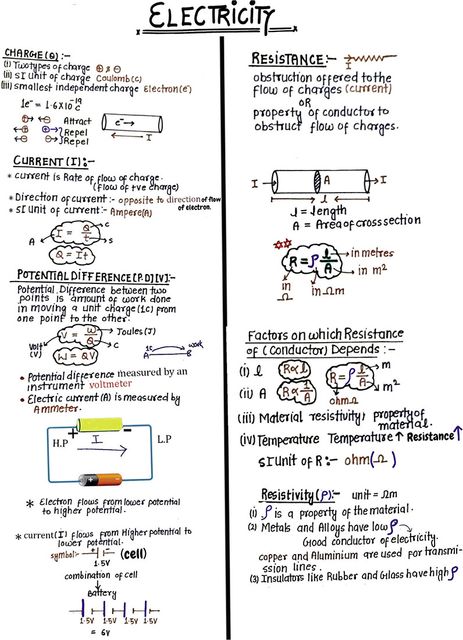 ELECTRICITY
CHARGE(Q):-
(i) Two types of charge ⊕ & ⊖
(ii) SI Unit of charge Coulomb(C)
(iii) smallest independent charge Electron(e⁻)
1e⁻ = 1.6X10⁻¹⁹ C
Attract
Repel
Repel
e⁻→
I
CURRENT(I):-
* current is Rate of flow of charge.
(flow of +ve charge)
* Direction of current :- opposite to direction of flow
of electron.
* SI Unit of current:- Ampere(A)
A I = Q/t C s
Q = It
POTENTIAL DIFFERENCE[P.D](V):-
Potential Difference between two
points is amount of work done
in moving a unit charge(1C) from
one point to the other.
Volt (V) V = W/Q Joules(J) C
W = QV
A work B
1C
• Potential difference measured by an
instrument voltmeter
• Electric current (A) is measured by
Ammeter.
+ -
H.P I L.P
* Electron flows from lower potential
to higher potential.
* current(I) flows from Higher potential to
lower potential.
symbol:- + - (cell)
1.5V
combination of cell
Battery
1.5V 1.5V 1.5V 1.5V
= 6V
RESISTANCE:-
I
obstruction offered to the
flow of charges (current)
OR
property of conductor to
obstruct flow of charges.
I A I
l
l = length
A = Area of cross section
R = ρ l/A
in metres
in m²
in Ω
in Ωm
Factors on which Resistance
of (Conductor) Depends :-
(i) l R∝l
(ii) A R∝1/A
R = ρ l/A m m²
ohm Ω
(iii) Material resistivity, property of
material.
(iv) Temperature Temperature↑ Resistance↑
SI Unit of R:- ohm(Ω)
Resistivity(ρ):- unit = Ωm
(i) ρ is a property of the material.
(2) Metals and Alloys have low ρ
Good conductor of electricity.
copper and Aluminium are used for transmi-
ssion lines.
(3) Insulators like Rubber and Glass have high ρ